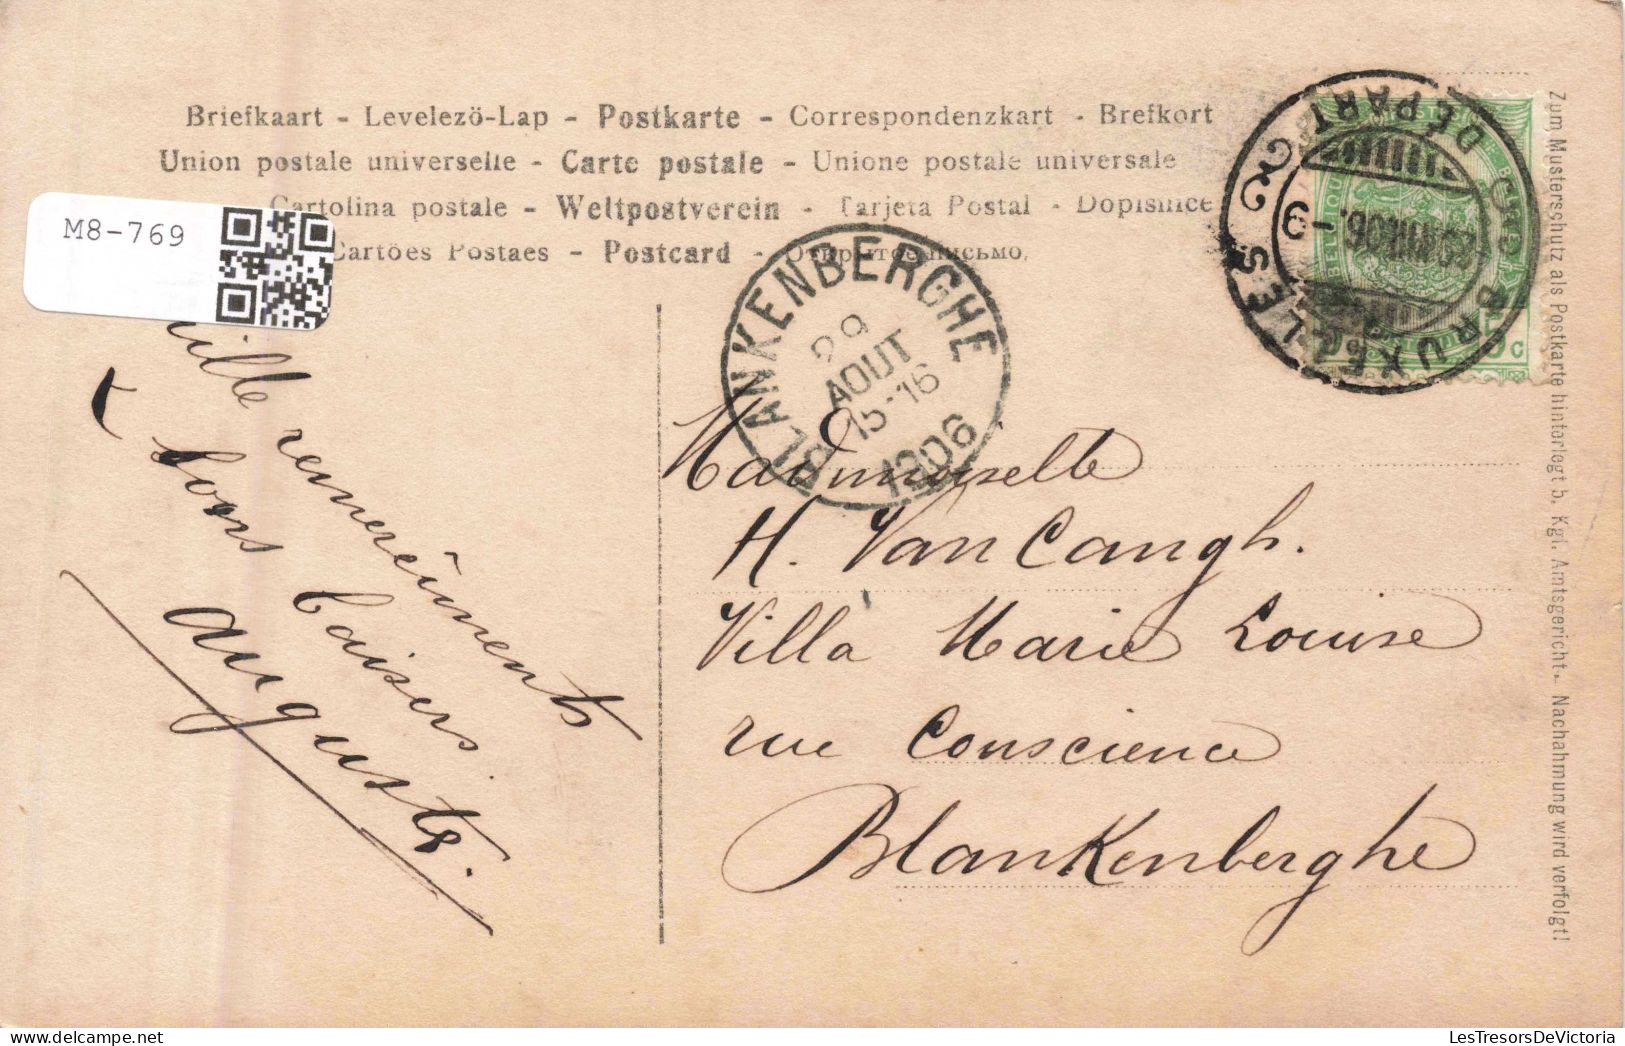 Briefkaart - Levelezö-Lap - Postkarte - Correspondenzkart - Brefkort
Union postale universelle - Carte postale - Unione postale universale
Cartolina postale - Weltpostverein - Tarjeta Postal - Dopisnice
Cartões Postaes - Postcard - Открытое письмо.
M8-769
BLANKENBERGHE
29
AOUT
15-16
1906
BRUXELLES
DÉPART
5 c
Mademoiselle
H. Van Cangh.
Villa Marie Louise
rue Conscience
Blankenberghe
remercîments
bons baisers
Auguste.
Zum Musterschutz als Postkarte hinterlegt b. Kgl. Amtsgericht. Nachahmung wird verfolgt!
LesTresorsDeVictoria